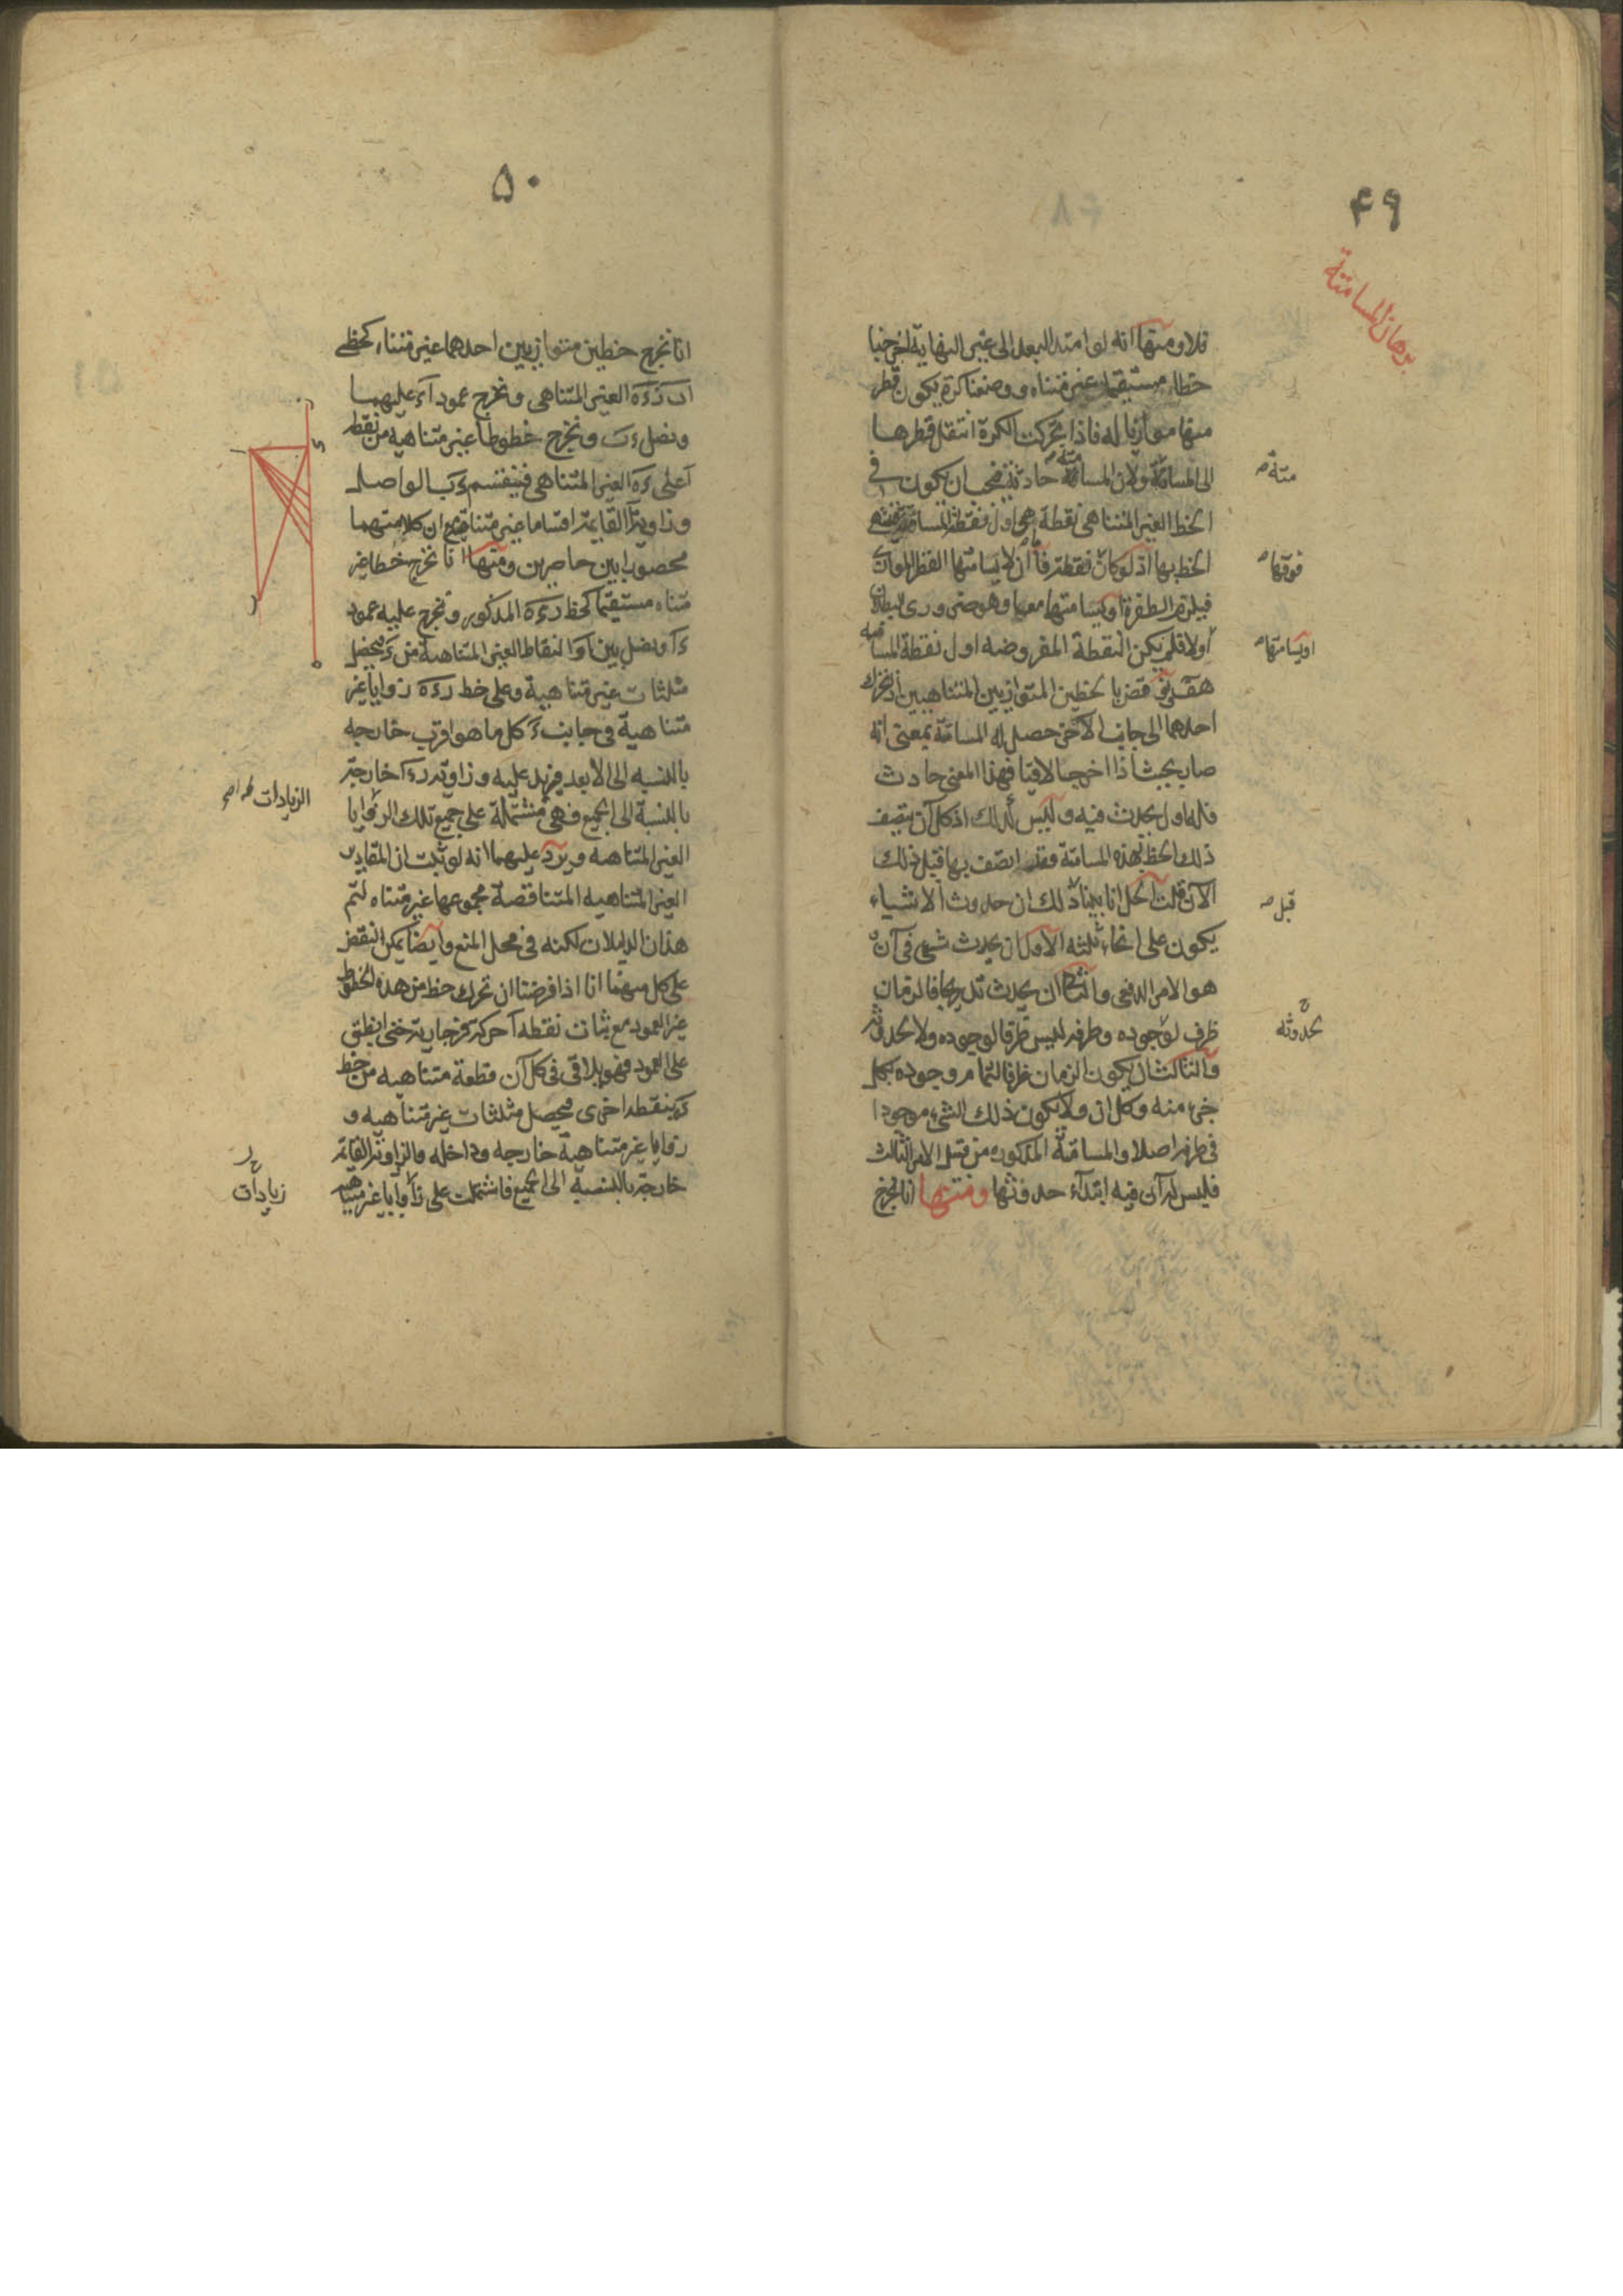 ۴۹
برهان المسامتة
تلا ومنها انه لو امتد البعد الى غير النهاية لخرجنا
خطا مستقيما غير متناه ووضعنا كرة يكون قطر
منها موازيا له فاذا تحركت الكرة انتقل قطرها
الى المسامتة ولان المسامتة حادثة فيجب ان يكون في
الخط الغير المتناهي نقطة هي اول نقطة المسامتة
الخط بها اذ لو كان نقطة فاما ان لا يسامتها القطر الموازي
فيلزم الطفرة او يسامتها معها وهو ضروري البطلان
اولا فلم يكن النقطة المفروضة اول نقطة المسامتة
هف نقض بالخطين المتوازيين المتناهيين اذ تحرك
احدهما الى جانب الآخر حصل له المسامتة بمعنى انه
صار بحيث اذا اخرجا لاقيا فهذا المعنى حادث
فله اول يحدث فيه وليس كذلك اذ كل آن يتصف
ذلك الخط بهذه المسامتة فقد اتصف بها قبل ذلك
الآن قلت الحل انا بينا ذلك ان حدوث الاشياء
يكون على انحاء ثلثه الاول ان يحدث شيء في آن
هو الامر الدفعي والثاني ان يحدث تدريجا فالزمان
ظرف لوجوده وطرفه ليس ظرفا لوجوده ولا لحدوثه
والثالث ان يكون الزمان ظرفا لتمام وجوده بكل
جزء منه وكل ان ولا يكون ذلك الشيء موجودا
في طرفه اصلا والمسامتة المذكوره من قبيل الامر الثالث
فليس له آن فيه ابتدآء حدوثها ومنها انا نخرج
متة صـ
فوقها صـ
او يسامتها صـ
قبل صـ
لحدوثه
۵۰
انا نخرج خطين متوازيين احدهما غير متناه كخطي
اب رءه الغير المتناهي ونخرج عمود آء عليهما
ونصل ءب ونخرج خطوطا غير متناهيه من نقطة
آ على ءه الغير المتناهي فينقسم ءب الواصل
وزاوية آ القايمة اقساما غير متناهية مع ان كلا منهما
محصور بين حاصرين ومنها انا نخرج خطا غير
متناه مستقيما كخط رءه المذكور ونخرج عليه عمود
ءآ ونصل بين آ والنقاط الغير المتناهية من ء فيحصل
مثلثات غير متناهية وعلى خط رءه زوايا غير
متناهية في جانب ء كل ما هو اقرب خارجه
بالنسبه الى الابعد فيزيد عليه وزاوية رءآ خارجة
بالنسبة الى الجميع فهي مشتملة على جميع تلك الزوايا
الغير المتناهيه ويرد عليهما انه لو ثبت ان المقادير
الغير المتناهيه المتناقصة مجموعها غير متناه لتم
هذان الدليلان لكنه في محل المنع وايضا يمكن النقض
على كل منهما انا اذا فرضنا ان تحرك خط من هذه الخطوط
غير العمود مع ثبات نقطه آ حركة فرجارية حتى انطبق
على العمود فهو يلاقي في كل آن قطعة متناهيه من خط
ءب بنقطه اخرى فيحصل مثلثات غير متناهيه و
زوايا غير متناهية خارجه وداخله والزاوية القائمة
خارجة بالنسبة الى الجميع فاشتملت على زوايا غير متناهيه
الزيادات
زيادات
ر
ء
ا
ب
ه